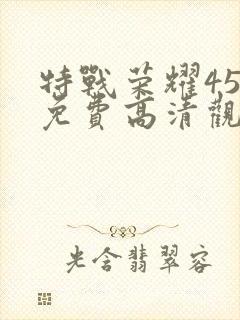 特戰荣耀45
免費高清觀
光含翡翠容